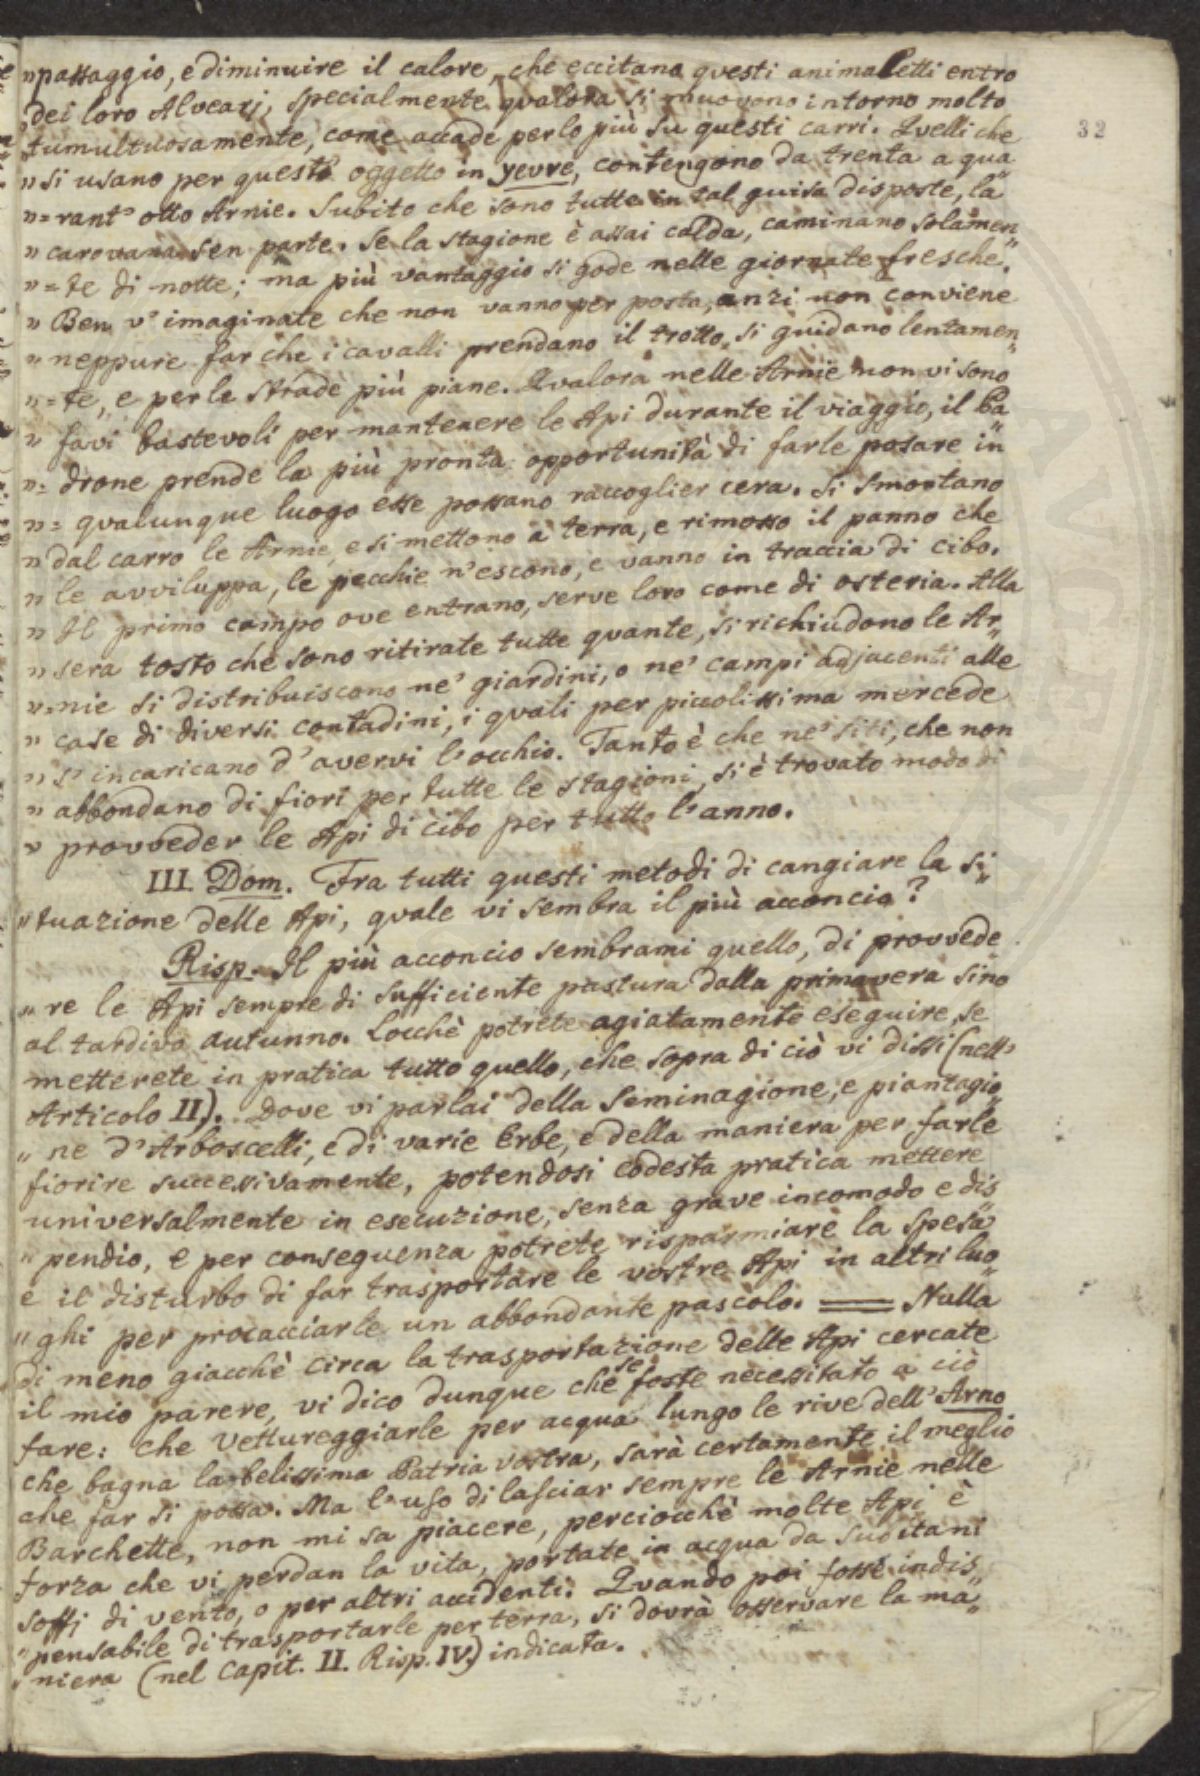 32
" passaggio, e diminuire il calore, che eccitano questi animaletti entro
dei loro Alvearj, specialmente qualora si muovono intorno molto
tumultuosamente, come accade per lo più su questi carri. Quelli che
" si usano per questo oggetto in yevre, contengono da trenta a qua„
" = rant' otto Arnie. Subito che sono tutte in tal guisa disposte, la
" carovana sen parte. Se la stagione è assai calda, caminano solamen„
" = te di notte; ma più vantaggio si gode nelle giornate fresche.
" Ben v' imaginate che non vanno per posta, anzi non conviene
" neppure far che i cavalli prendano il trotto, si guidano lentamen„
" = te, e per le strade più piane. Qualora nelle Arnie non vi sono
" favi bastevoli per mantenere le Api durante il viaggio, il Pa„
" = drone prende la più pronta opportunità di farle posare in
" = qualunque luogo esse possano raccoglier cera. Si smontano
" dal carro le Arnie, e si mettono a terra, e rimosso il panno che
" le avviluppa, le pecchie n'escono, e vanno in traccia di cibo.
" Il primo campo ove entrano, serve loro come di osteria. Alla
" sera tosto che sono ritirate tutte quante, si richiudono le Ar„
" = nie si distribuiscono ne' giardini, o ne' campi adjacenti alle
" case di diversi contadini, i quali per piccolissima mercede
" s' incaricano d' avervi l' occhio. Tanto è che ne' siti, che non
" abbondano di fiori per tutte le stagioni, si è trovato modo di
" provveder le Api di cibo per tutto l' anno.
III. Dom. Fra tutti questi metodi di cangiare la si„
" tuazione delle Api, quale vi sembra il più acconcio?
Risp. Il più acconcio sembrami quello, di provvede
" re le Api sempre di sufficiente pastura dalla primavera sino
al tardivo autunno. Locchè potrete agiatamente eseguire, se
metterete in pratica tutto quello, che sopra di ciò vi dissi (nell'
Articolo II). Dove vi parlai della Seminagione, e piantagio„
" ne d' Arboscelli, e di varie Erbe, e della maniera per farle
fiorire successivamente, potendosi codesta pratica mettere
universalmente in esecuzione, senza grave incomodo e dis„
" pendio, e per conseguenza potrete risparmiare la spesa
e il disturbo di far trasportare le vostre Api in altri luo„
" ghi per procacciarle un abbondante pascolo. == Nulla
di meno giacchè circa la trasportazione delle Api cercate
il mio parere, vi dico dunque che se foste necessitato a ciò
fare: che vettureggiarle per acqua lungo le rive dell' Arno
che bagna la belissima Patria vostra, sarà certamente il meglio
che far si possa. Ma l' uso di lasciar sempre le Arnie nelle
Barchette, non mi sa piacere, perciocchè molte Api è
forza che vi perdan la vita, portate in acqua da subitani
soffj di vento, o per altri accidenti. Quando poi fosse indis„
" pensabile di trasportarle per terra, si dovrà osservare la ma„
" niera (nel Capit. II. Risp. IV.) indicata.